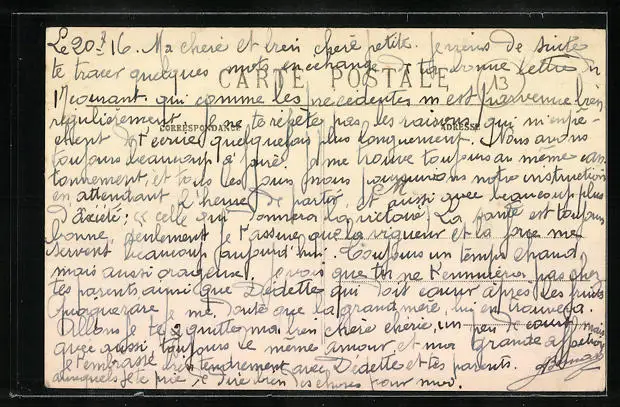 Le 20-7-16. Ma chère et bien chère petite. Je viens de suite
te tracer quelques mots en échange de ta bonne lettre du
CARTE POSTALE
13
17 courant. qui comme les précédentes m'est parvenue bien
régulièrement. Je ne te répète pas les raisons qui m'empê-
CORRESPONDANCE
ADRESSE
chent de t'écrire quelquefois plus longuement. Nous avons
toujours beaucoup à faire. Je me trouve toujours au même can-
tonnement, et tous les jours nous poursuivons notre instruction
en attendant l'heure de partir, et aussi avec beaucoup plus
d'axiété: celle qui donnera la victoire. La santé est toujours
bonne, seulement je t'assure que la vigueur et la force me
servent beaucoup aujourd'hui. Toujours un temps chaud
mais aussi orageuse. Je vois que tu ne t'ennuieras pas chez
tes parents ainsi que Dédette qui doit courir après les fruits
je me doute que la grand mère, lui en trouvera.
Allons je te quitte, ma bien chère chérie, un peu de mais
avec aussi toujours le même amour, et ma grande affection
Je t'embrasse bien tendrement avec Dédette et tes parents.
auxquels je te prie, de dire bien des choses pour moi.